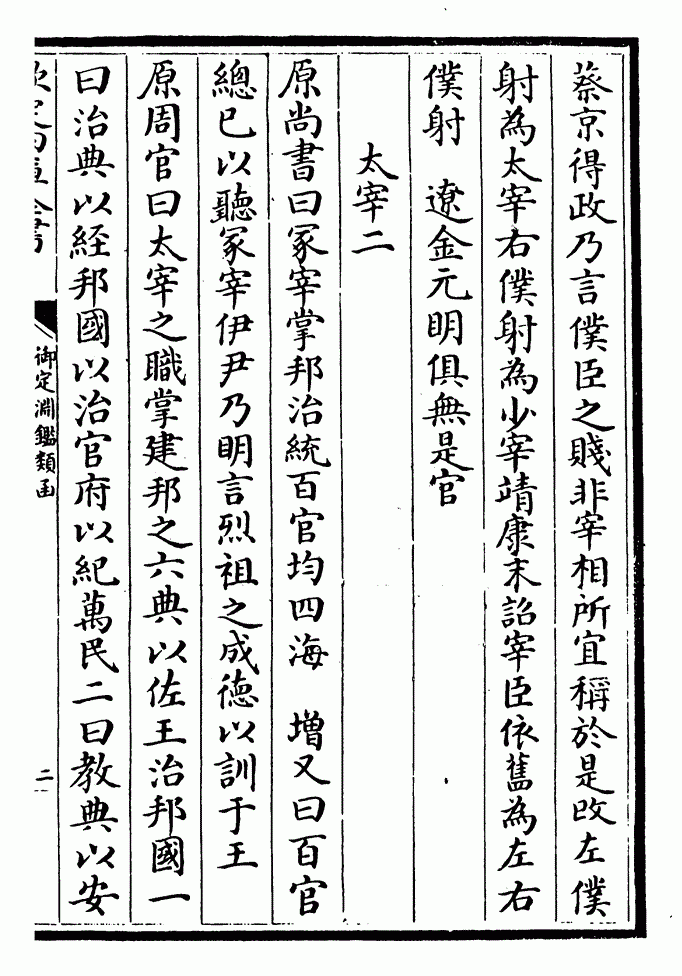 蔡京得政乃言僕臣之賤非宰相所宜稱於是改左僕
射為太宰右僕射為少宰靖康末詔宰臣依舊為左右
僕射　遼金元明俱無是官
太宰二
原尚書曰冢宰掌邦治統百官均四海　增又曰百官
總已以聽冢宰伊尹乃明言烈祖之成德以訓于王
原周官曰太宰之職掌建邦之六典以佐王治邦國一
曰治典以經邦國以治官府以紀萬民二曰教典以安
欽定四庫全書
御定淵鑑類函
二